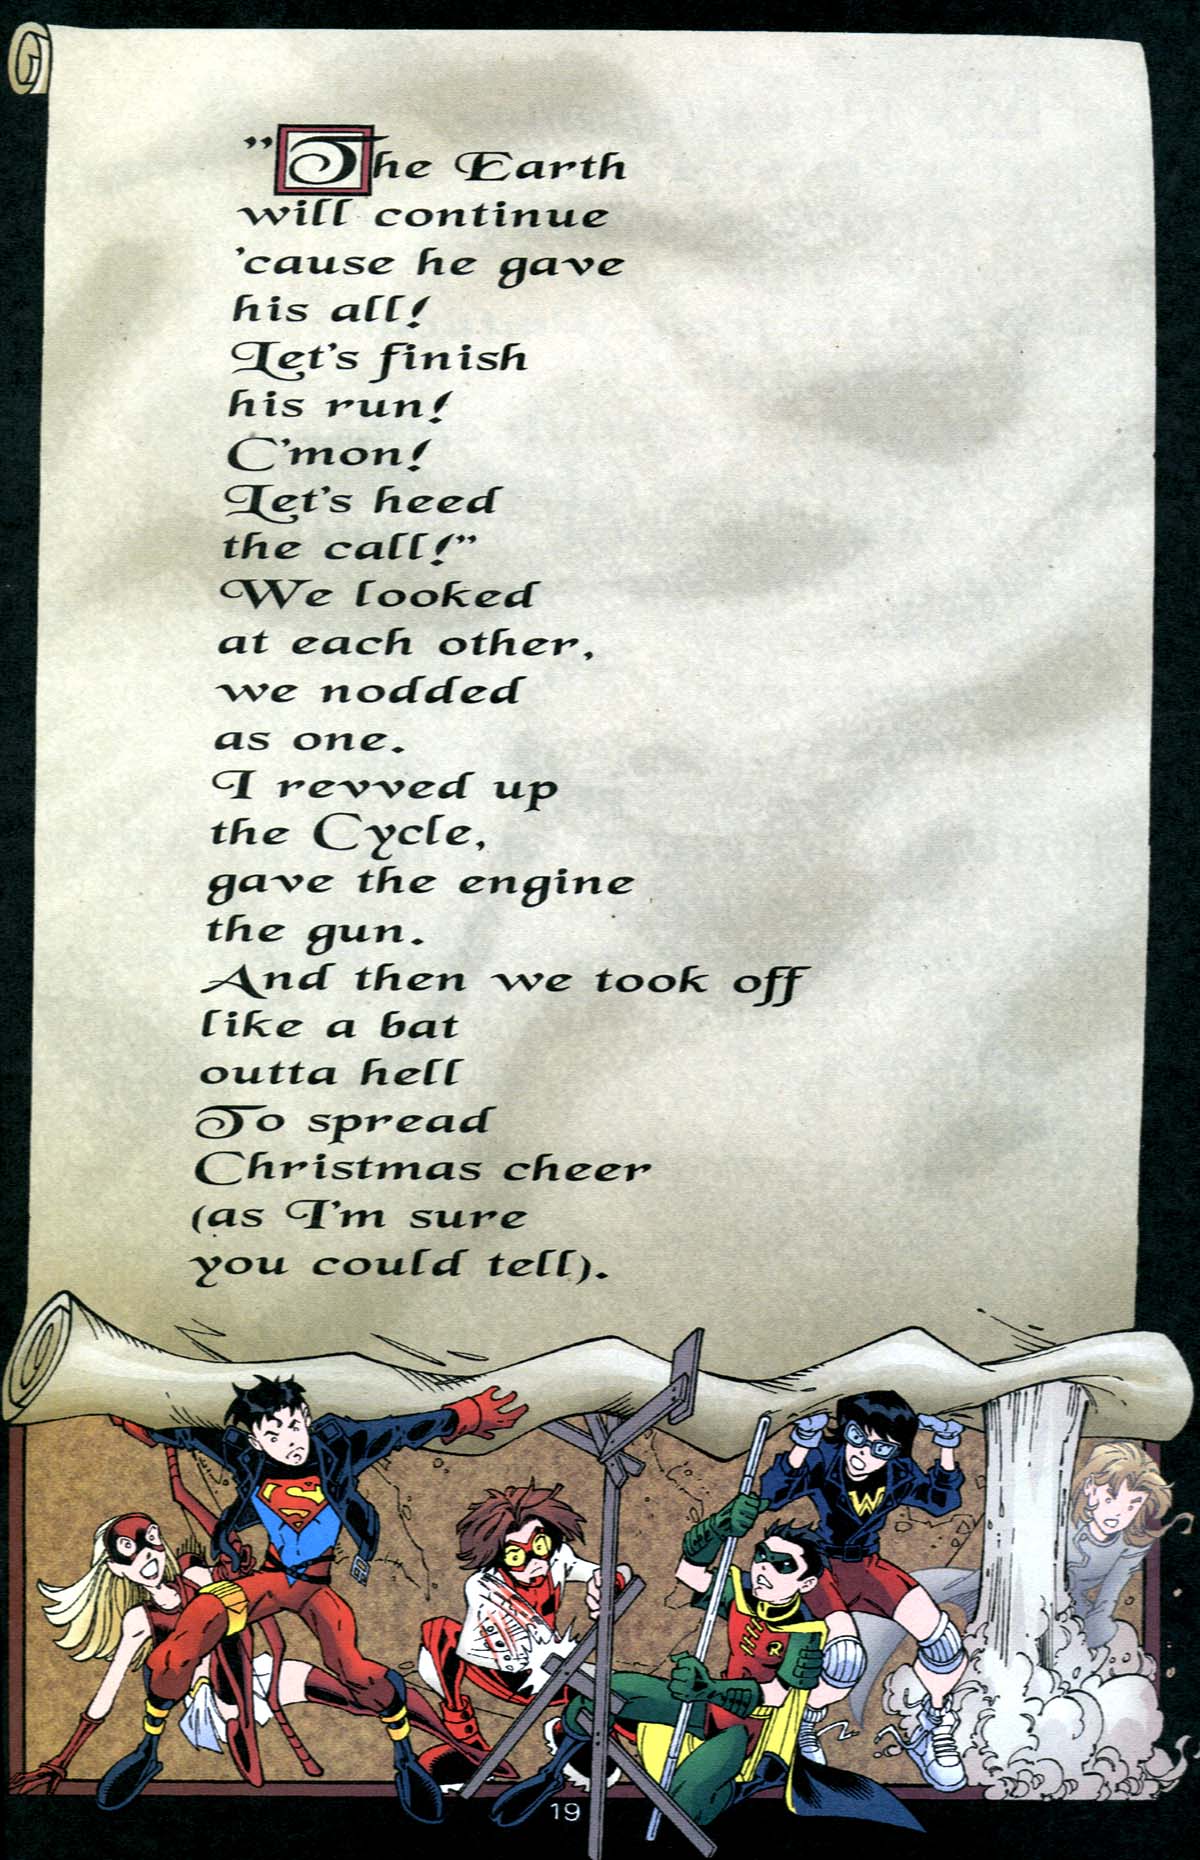 "The Earth
will continue
'cause he gave
his all!
Let's finish
his run!
C'mon!
Let's heed
the call!"
We looked
at each other,
we nodded
as one.
I revved up
the Cycle,
gave the engine
the gun.
And then we took off
like a bat
outta hell
To spread
Christmas cheer
(as I'm sure
you could tell).
S
W
R
19